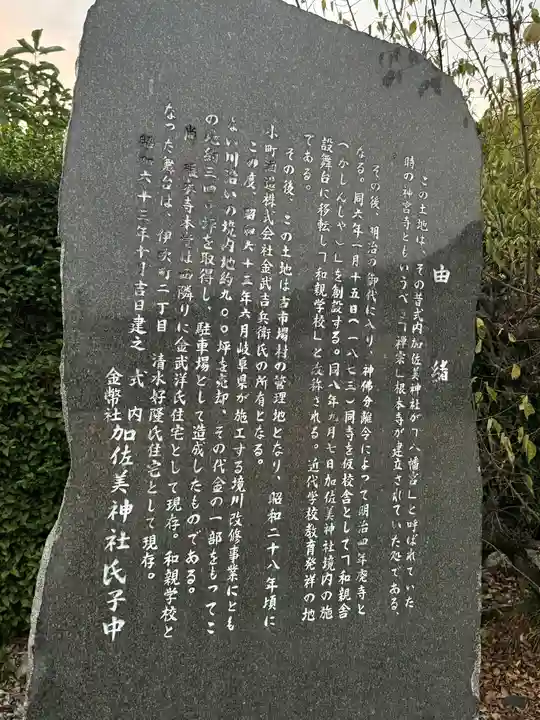 由緒
この土地は、その昔式内加佐美神社が「八幡宮」と呼ばれていた
時の神宮寺ともいうべき「禅宗」根本寺が建立されていた処である、
その後、明治の御代に入り、神佛分離令によって明治四年廃寺と
なる。同六年一月十五日(一八七三)同寺を仮校舎として「和親舎
(かしんしゃ)」を創設する。同八年九月七日加佐美神社境内の施
設舞台に移転し「和親学校」と改称される。近代学校教育発祥の地
である。
その後、この土地は古市場村の管理地となり、昭和二十八年頃に
小町酒造株式会社金武吉兵衛氏の所有となる。
この度、昭和六十三年六月岐阜県が施工する境川改修事業にとも
ない川沿いの境内地約九〇〇坪を売却、その代金の一部をもってこ
の地約三四〇坪を取得し、駐車場として造成したものである。
尚、根本寺本堂は西隣りに金武洋氏住宅として現存。和親学校と
なった舞台は、伊吹町二丁目 清水好隆氏住宅として現存。
昭和六十三年十月吉日建之
式内
金幣社 加佐美神社氏子中